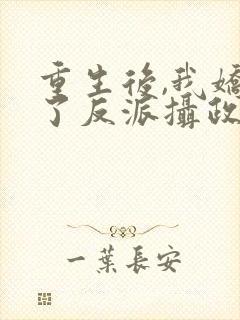 重生後,我嬌
了反派攝政
一葉長安